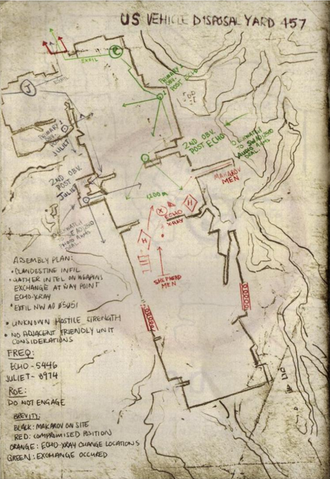 US VEHICLE DISPOSAL YARD 457
J
2ND OBJ
POST ECHO
MAKAROV
MEN
2ND OBJ
POST
JULIET
ECHO
XRAY
SHEPHERD
MEN
ASSEMBLY PLAN:
• CLANDESTINE INFIL
• GATHER INTEL IN WEAPONS
EXCHANGE AT WAY POINT
ECHO-XRAY
• UNKNOWN HOSTILE STRENGTH
• NO ADJACENT FRIENDLY UNIT
CONSIDERATIONS
FREQ:
ECHO - 5446
JULIET - 8974
ROE:
DO NOT ENGAGE
BREVITY:
BLACK: MAKAROV ON SITE
RED: COMPROMISED POSITION
ORANGE: ECHO-XRAY CHANGE LOCATIONS
GREEN: EXCHANGE OCCURED